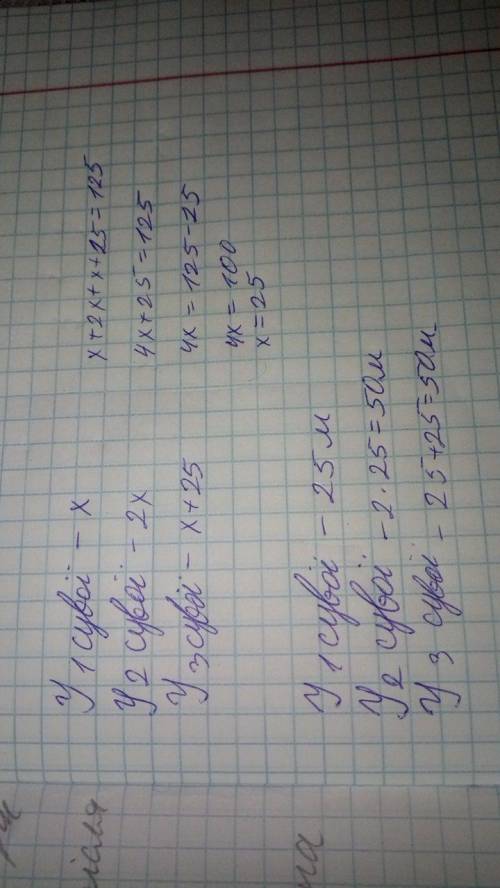 У 1 сувої – x
У 2 сувої – 2x
У 3 сувої – x+25
x+2x+x+25=125
4x+25=125
4x=125-25
4x=100
x=25
У 1 сувої – 25 м
У 2 сувої – 2·25=50м
У 3 сувої – 25+25=50м